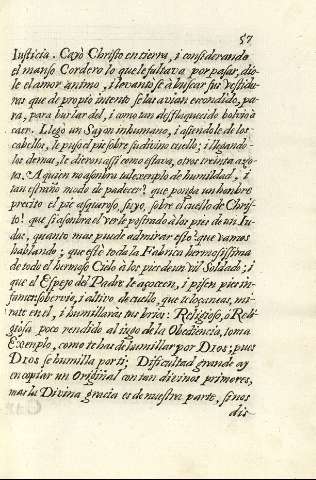 57
Iusticia. Cayò Christo en tierra, i considerando
el manso Cordero lo que le faltava por pasar, diò-
le el amor animo, i levantose à buscar sus vestidu-
ras que de propio intento se las avian escondido, pa-
ra, para burlar del, i como tan desflaquecido bolvio à
caer. Llegò un Sayon inhumano, i asiendole de los
cabellos, le puso el pie sobre su divino cuello; i llegando-
los demas, le dieron assi como estava, otros treinta azo-
tes. A quien no asombra tal exemplo de humildad, i
tan estraño modo de padecer? que ponga un hombre
precito el pie asqueroso, feyo, sobre el cuello de Chris-
to! que si asombra el verle postrado à los pies de un Iu-
das, quanto mas puede admirar esto que vamos
hablando; que estè toda la Fabrica hermosissima
de todo el hermoso Cielo à los pies de un vil Soldado; i
que el Espejo del Padre le açocen, i pisen pies in-
fames. Sobervio, i altivo de cuello, que te loçaneas, mi-
rate en el, i humillaràs tus brios: Religioso, ò Reli-
giosa poco rendido al iugo de la Obediencia, toma
Exemplo, como te has de humillar por DIOS; pues
DIOS se humilla por ti; Dificultad grande ay
en copiar un Original con tan divinos primores,
mas la Divina gracia es de nuestra parte, si nos
dis